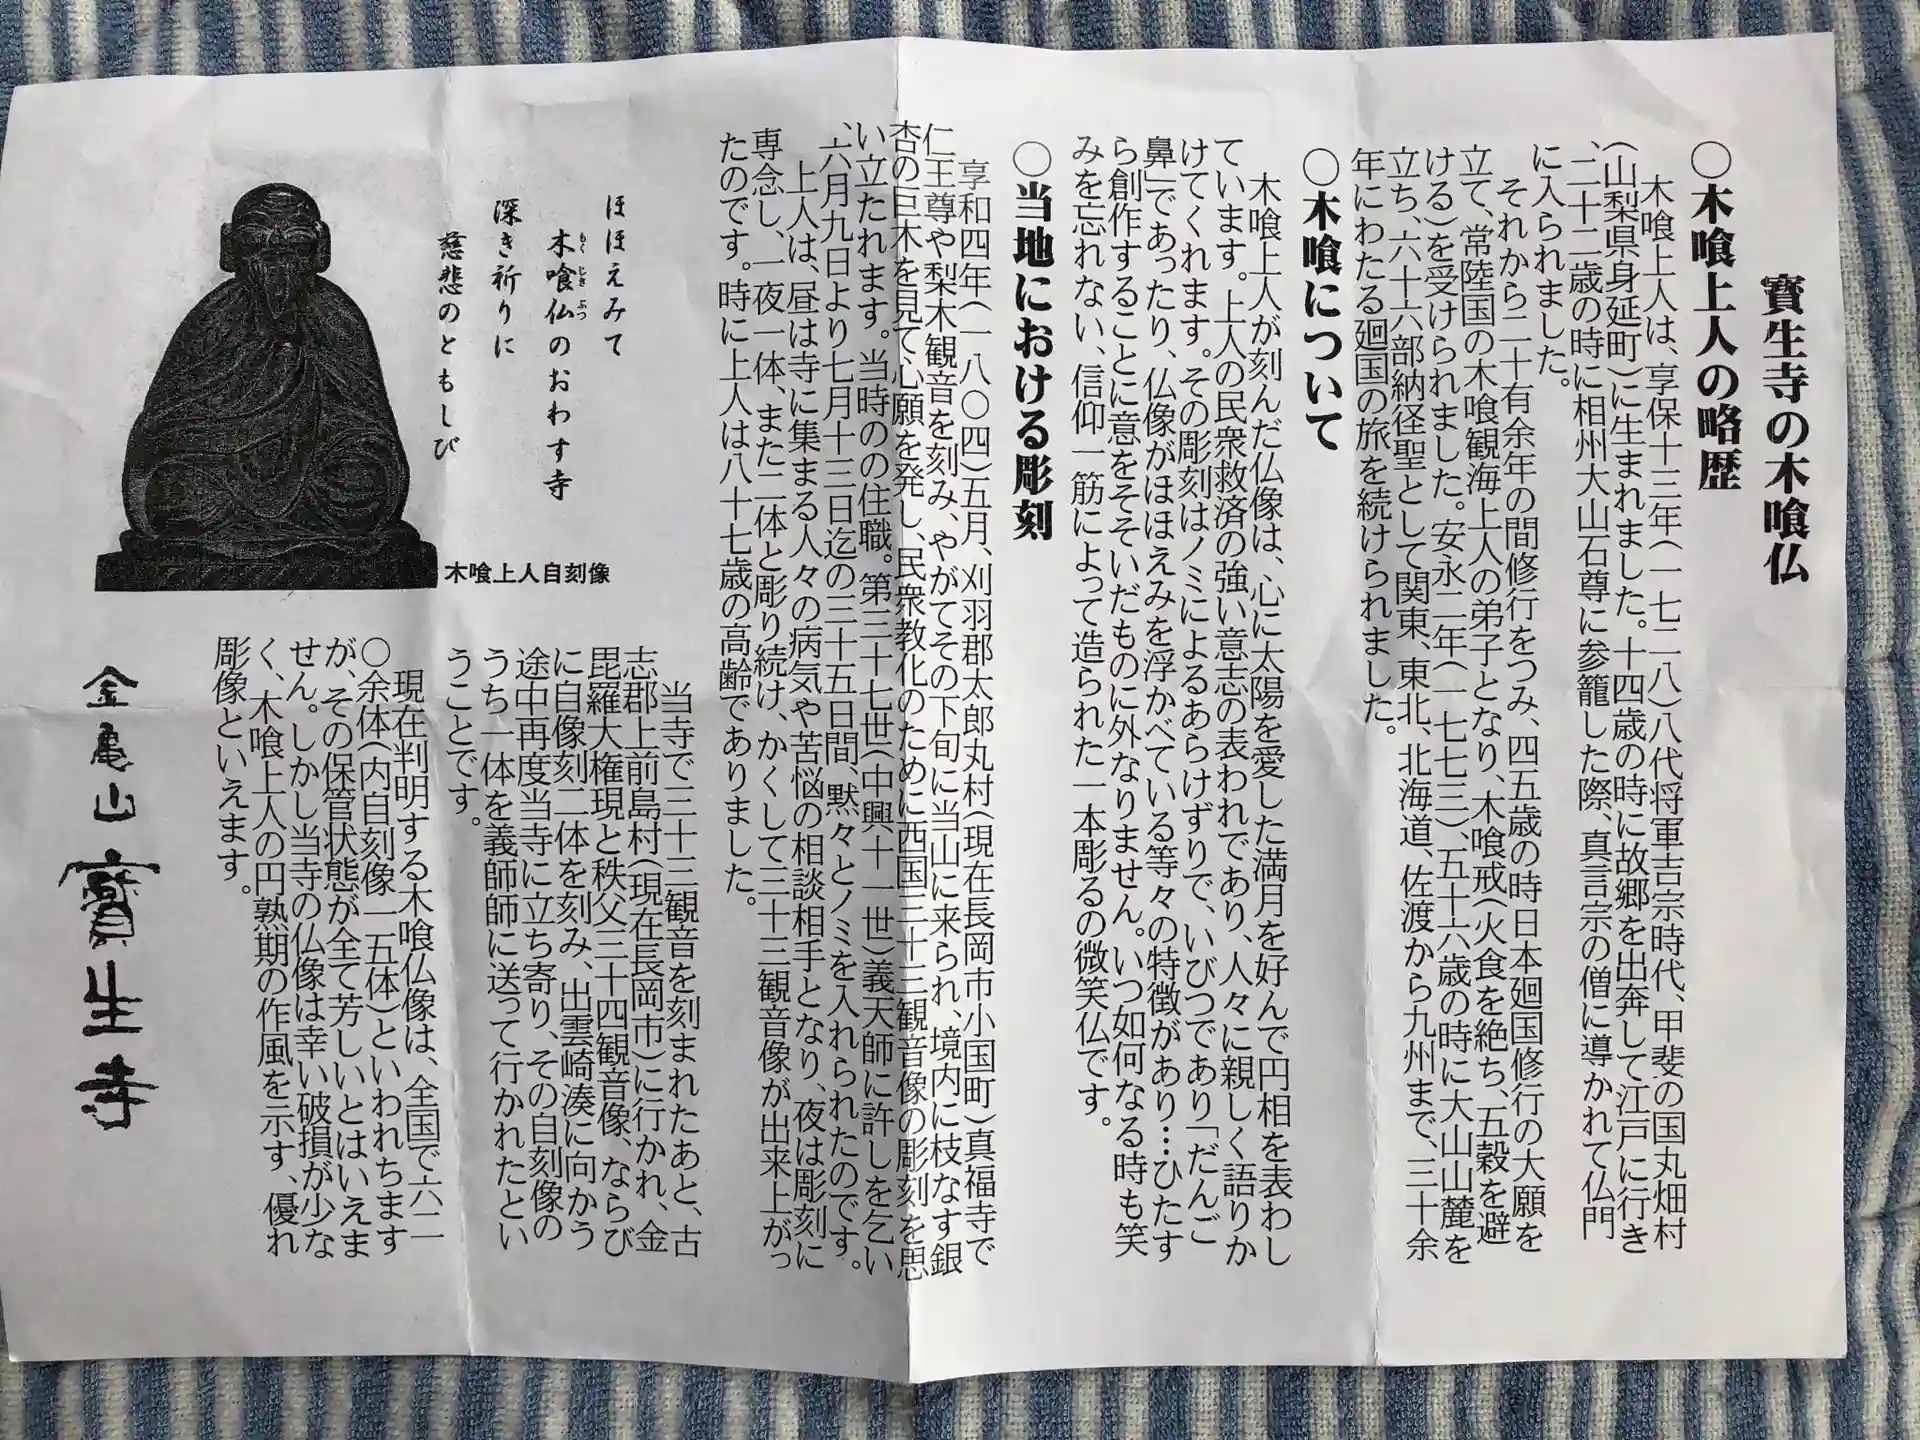 寳生寺の木喰仏
○木喰上人の略歴
木喰上人は、享保十三年(一七二八)八代将軍吉宗時代、甲斐の国丸畑村
(山梨県身延町)に生まれました。十四歳の時に故郷を出奔して江戸に行き
、二十二歳の時に相州大山石尊に参籠した際、真言宗の僧に導かれて仏門
に入られました。
それから二十有余年の間修行をつみ、四五歳の時日本廻国修行の大願を
立て、常陸国の木喰観海上人の弟子となり、木喰戒(火食を絶ち、五穀を避
ける)を受けられました。安永二年(一七七三)、五十六歳の時に大山山麓を
立ち、六十六部納経聖として関東、東北、北海道、佐渡から九州まで、三十余
年にわたる廻国の旅を続けられました。
○木喰について
木喰上人が刻んだ仏像は、心に太陽を愛した満月を好んで円相を表わし
ています。上人の民衆救済の強い意志の表われであり、人々に親しく語りか
けてくれます。その彫刻はノミによるあらけずりで、いびつであり「だんご
鼻」であったり、仏像がほほえみを浮かべている等々の特徴があり…ひたす
ら創作することに意をそそいだものに外なりません。いつ如何なる時も笑
みを忘れない、信仰一筋によって造られた一本彫るの微笑仏です。
○当地における彫刻
享和四年(一八〇四)五月、刈羽郡太郎丸村(現在長岡市小国町)真福寺で
仁王尊や梨木観音を刻み、やがてその下旬に当山に来られ、境内に枝なす銀
杏の巨木を見て心願を発し、民衆教化のために西国三十三観音像の彫刻を思
い立たれます。当時のの住職。第三十七世(中興十一世)義天師に許しを乞い
、六月九日より七月十三日迄の三十五日間、黙々とノミを入れられたのです。
上人は、昼は寺に集まる人々の病気や苦悩の相談相手となり、夜は彫刻に
専念し、一夜一体、また二体と彫り続け、かくして三十三観音像が出来上がっ
たのです。時に上人は八十七歳の高齢でありました。
当寺で三十三観音を刻まれたあと、古
志郡上前島村(現在長岡市)に行かれ、金
毘羅大権現と秩父三十四観音像、ならび
に自像刻二体を刻み、出雲崎湊に向かう
途中再度当寺に立ち寄り、その自刻像の
うち一体を義師師に送って行かれたとい
うことです。
現在判明する木喰仏像は、全国で六二
○余体(内自刻像一五体)といわれちます
が、その保管状態が全て芳しいとはいえま
せん。しかし当寺の仏像は幸い破損が少な
く、木喰上人の円熟期の作風を示す、優れ
彫像といえます。
ほほえみて
木喰仏のおわす寺
もくじきぶつ
深き祈りに
慈悲のともしび
木喰上人自刻像
金亀山 寳生寺